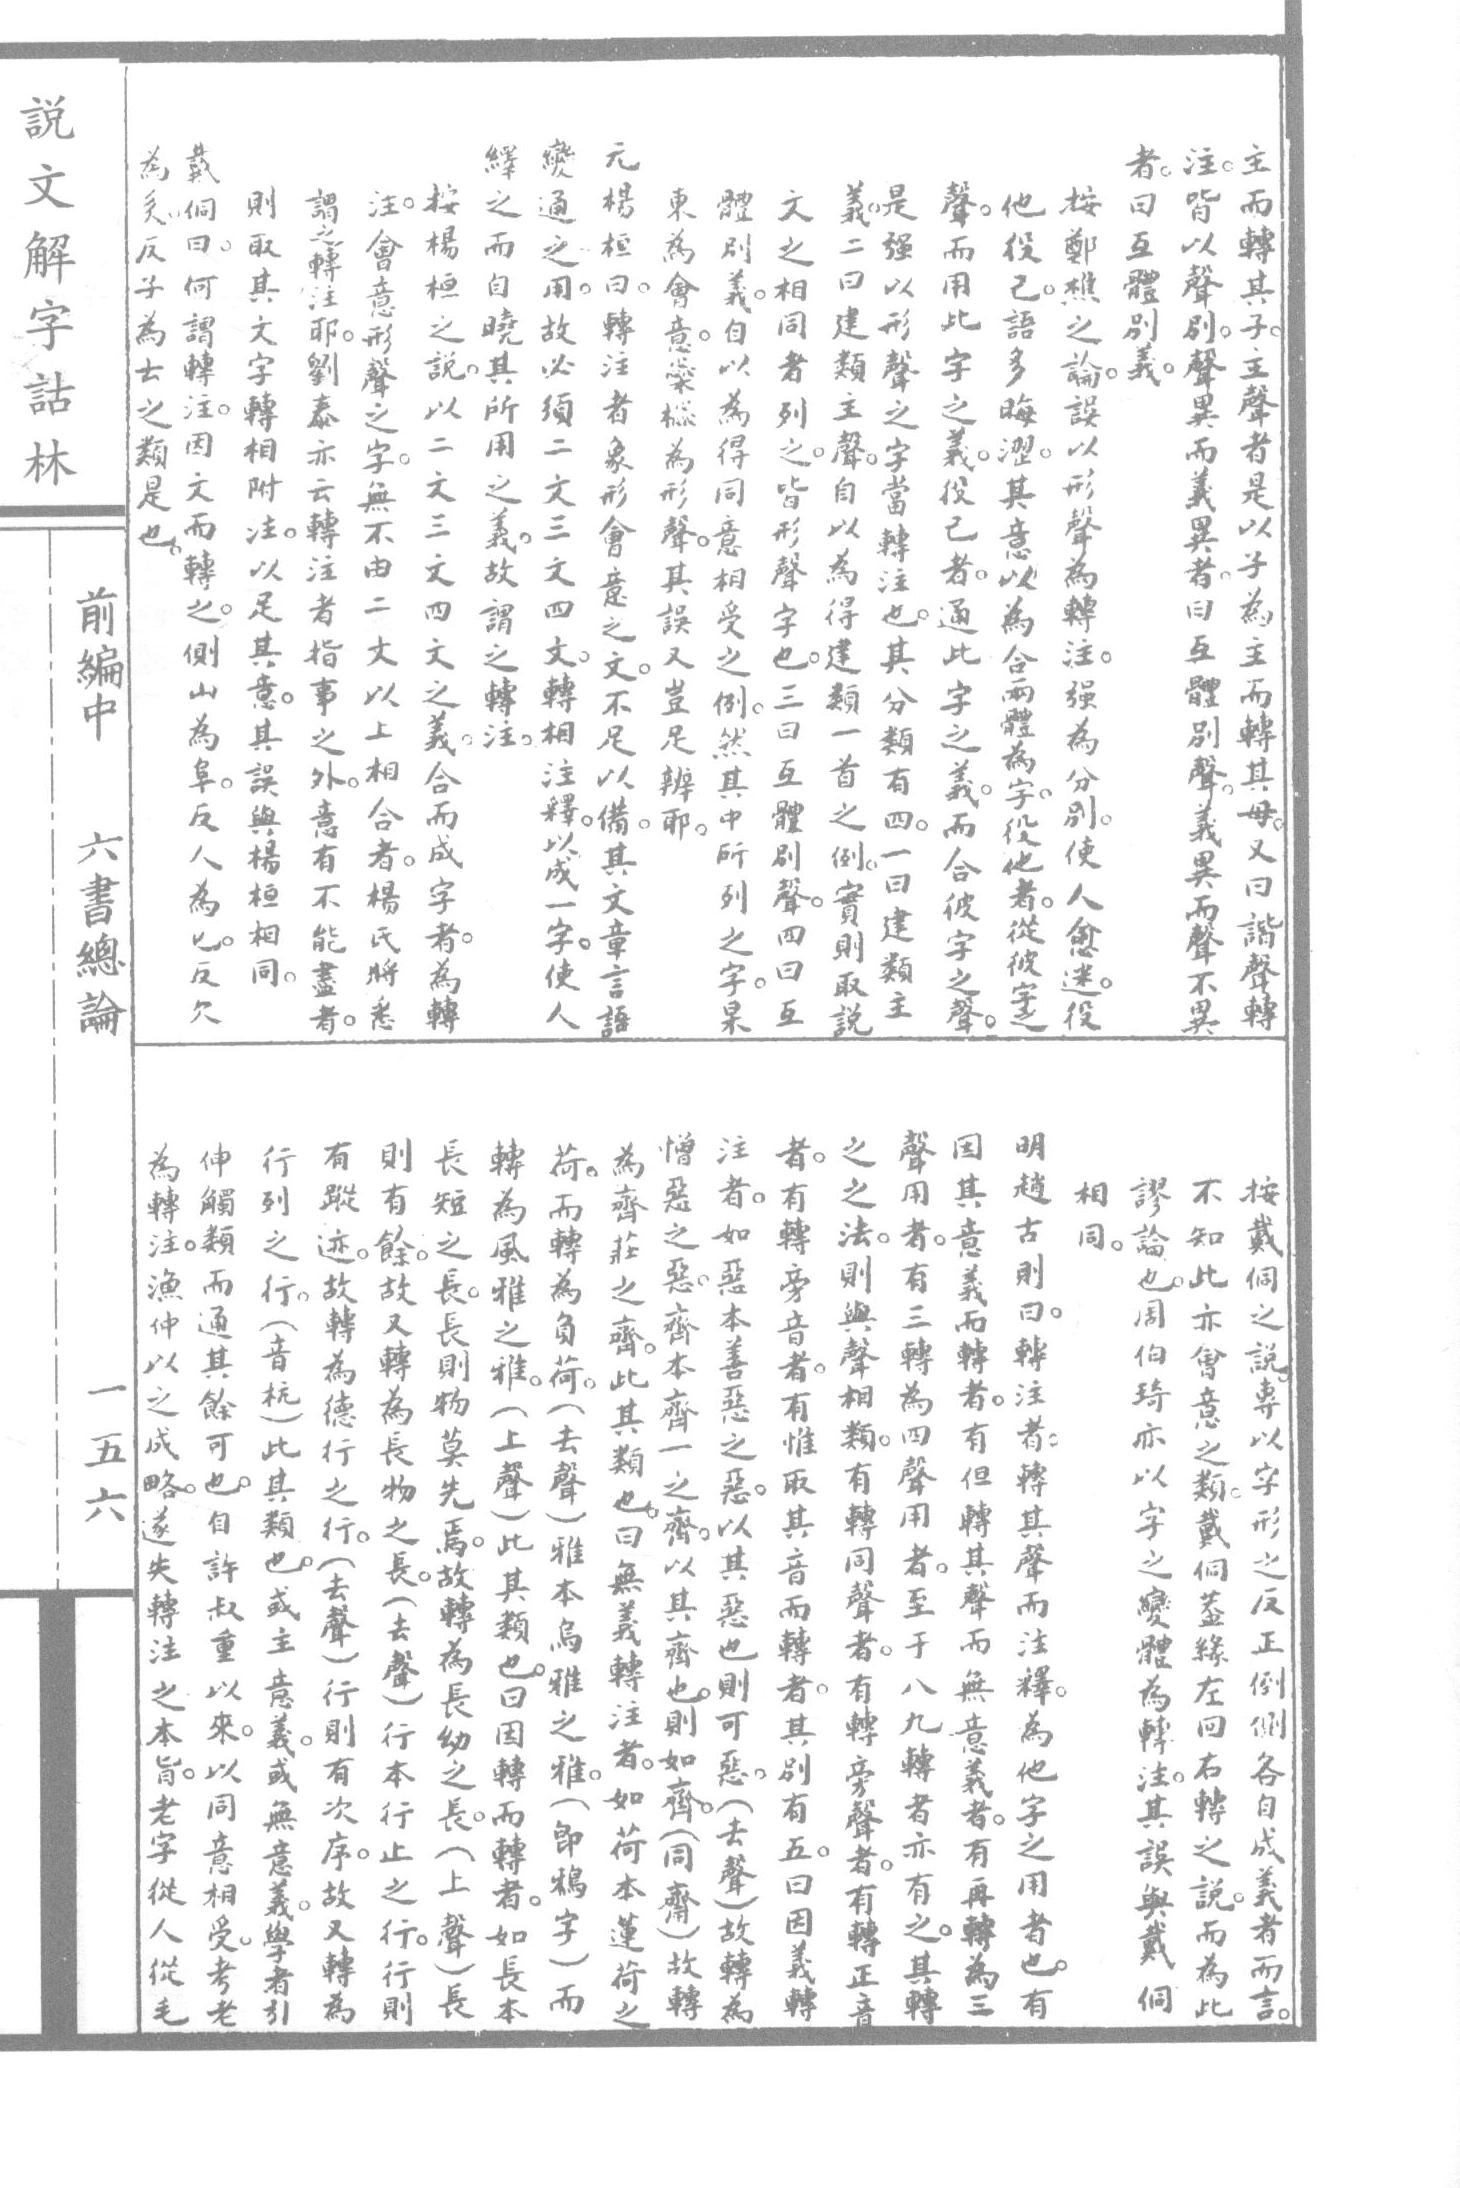 主而轉其子。主聲者是以子為主而轉其母。又曰諧聲轉
注。皆以聲別。聲異而義異者。曰互體別聲。義異而聲不異
者。曰互體別義。
按鄭樵之論。誤以形聲為轉注。强為分別。使人愈迷。役
他役己。語多晦澀。其意以為合兩體為字。役他者。從彼字之
聲。而用此字之義。役己者。通此字之義。而合彼字之聲。
是强以形聲之字當轉注也。其分類有四。一曰建類主
義。二曰建類主聲。自以為得建類一首之例。實則取說
文之相同者列之。皆形聲字也。三曰互體別聲。四曰互
體別義。自以為得同意相受之例。然其中所列之字。杲
東為會意。㮚㮏為形聲。其誤又豈足辨耶。
元楊桓曰。轉注者象形會意之文。不足以備。其文章言語
變通之用。故必須二文三文四文。轉相注釋。以成一字。使人
繹之而自曉其所用之義。故謂之轉注。
按楊桓之說。以二文三文四文之義。合而成字者。為轉
注。會意形聲之字。無不由二文以上相合者。楊氏將悉
謂之轉注耶。劉泰亦云轉注者指事之外。意有不能盡者。
則取其文字轉相附注。以足其意。其誤與楊桓相同。
戴侗曰。何謂轉注。因文而轉之。側山為阜。反人為匕。反欠
為旡。反子為𠫓之類是也。
按戴侗之說。專以字形之反正倒側各自成義者而言。
不知此亦會意之類。戴侗蓋緣左回右轉之說。而為此
謬論也。周伯琦亦以字之變體為轉注。其誤與戴侗
相同。
明趙古則曰。轉注者。轉其聲而注釋。為他字之用者也。有
因其意義而轉者。有但轉其聲而無意義者。有再轉為三
聲用者。有三轉為四聲用者。至于八九轉者亦有之。其轉
之之法。則與聲相類。有轉同聲者。有轉旁聲者。有轉正音
者。有轉旁音者。有惟取其音而轉者。其別有五。曰因義轉
注者。如惡本善惡之惡。以其惡也則可惡。(去聲)故轉為
憎惡之惡。齊本齊一之齊。以其齊也。則如齊。(同齋)故轉
為齊莊之齊。此其類也。曰無義轉注者。如荷本蓮荷之
荷。而轉為負荷。(去聲)雅本烏雅之雅。(即鴉字)而
轉為風雅之雅。(上聲)此其類也。曰因轉而轉者。如長本
長短之長。長則物莫先焉。故轉為長幼之長。(上聲)長
則有餘。故又轉為長物之長。(去聲)行本行止之行。行則
有蹤迹。故轉為德行之行。(去聲)行則有次序。故又轉為
行列之行。(音杭)此其類也。或主意義。或無意義。學者引
伸觸類而通其餘可也。自許叔重以來。以同意相受。考老
為轉注。漁仲以之成略。遂失轉注之本旨。老字從人從毛
說文解字詁林
前編中
六書總論
一五六